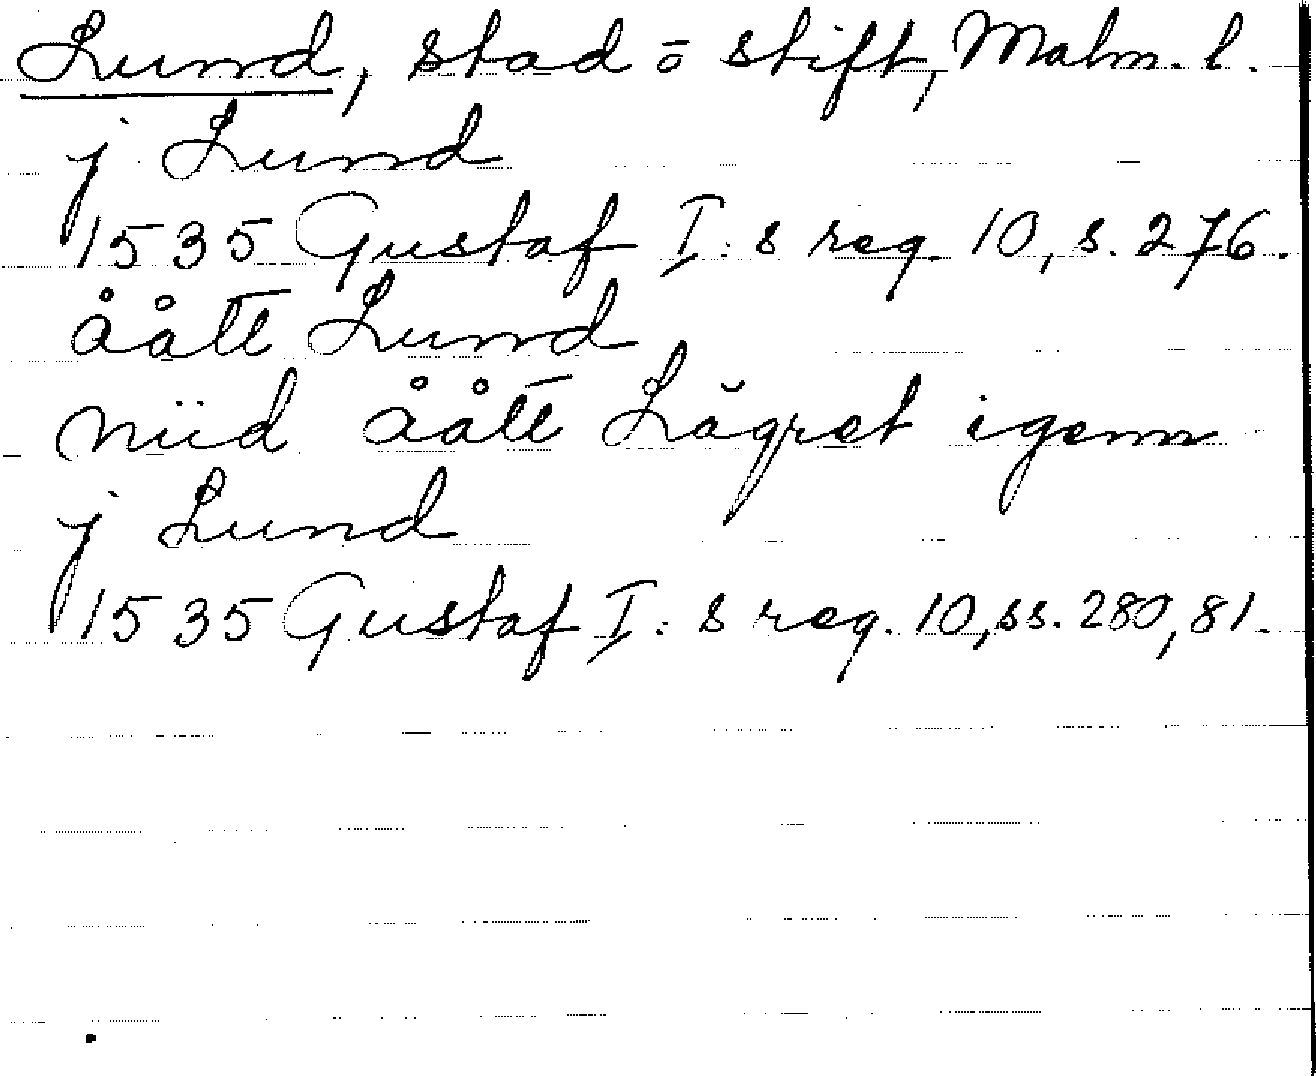 Lund, stad o stift, Malm. l.
j Lund
1535 Gustaf I:s reg. 10, s. 276.
åått Lund
niid åått Lägret igenn
j Lund
1535 Gustaf I:s reg. 10, ss. 280, 81.